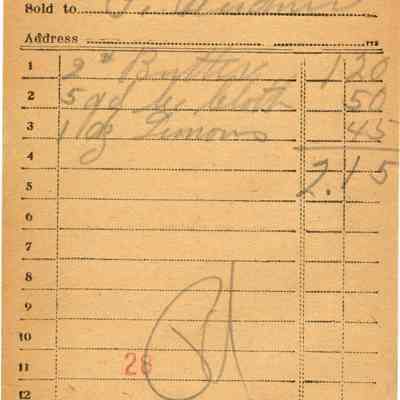 Sold to
Address
1 2# Butter 1 20
2 5 yd cloth 50
3 1 dz Lemons 45
4 2.15
5
6
7
8
9
10
11 28
12